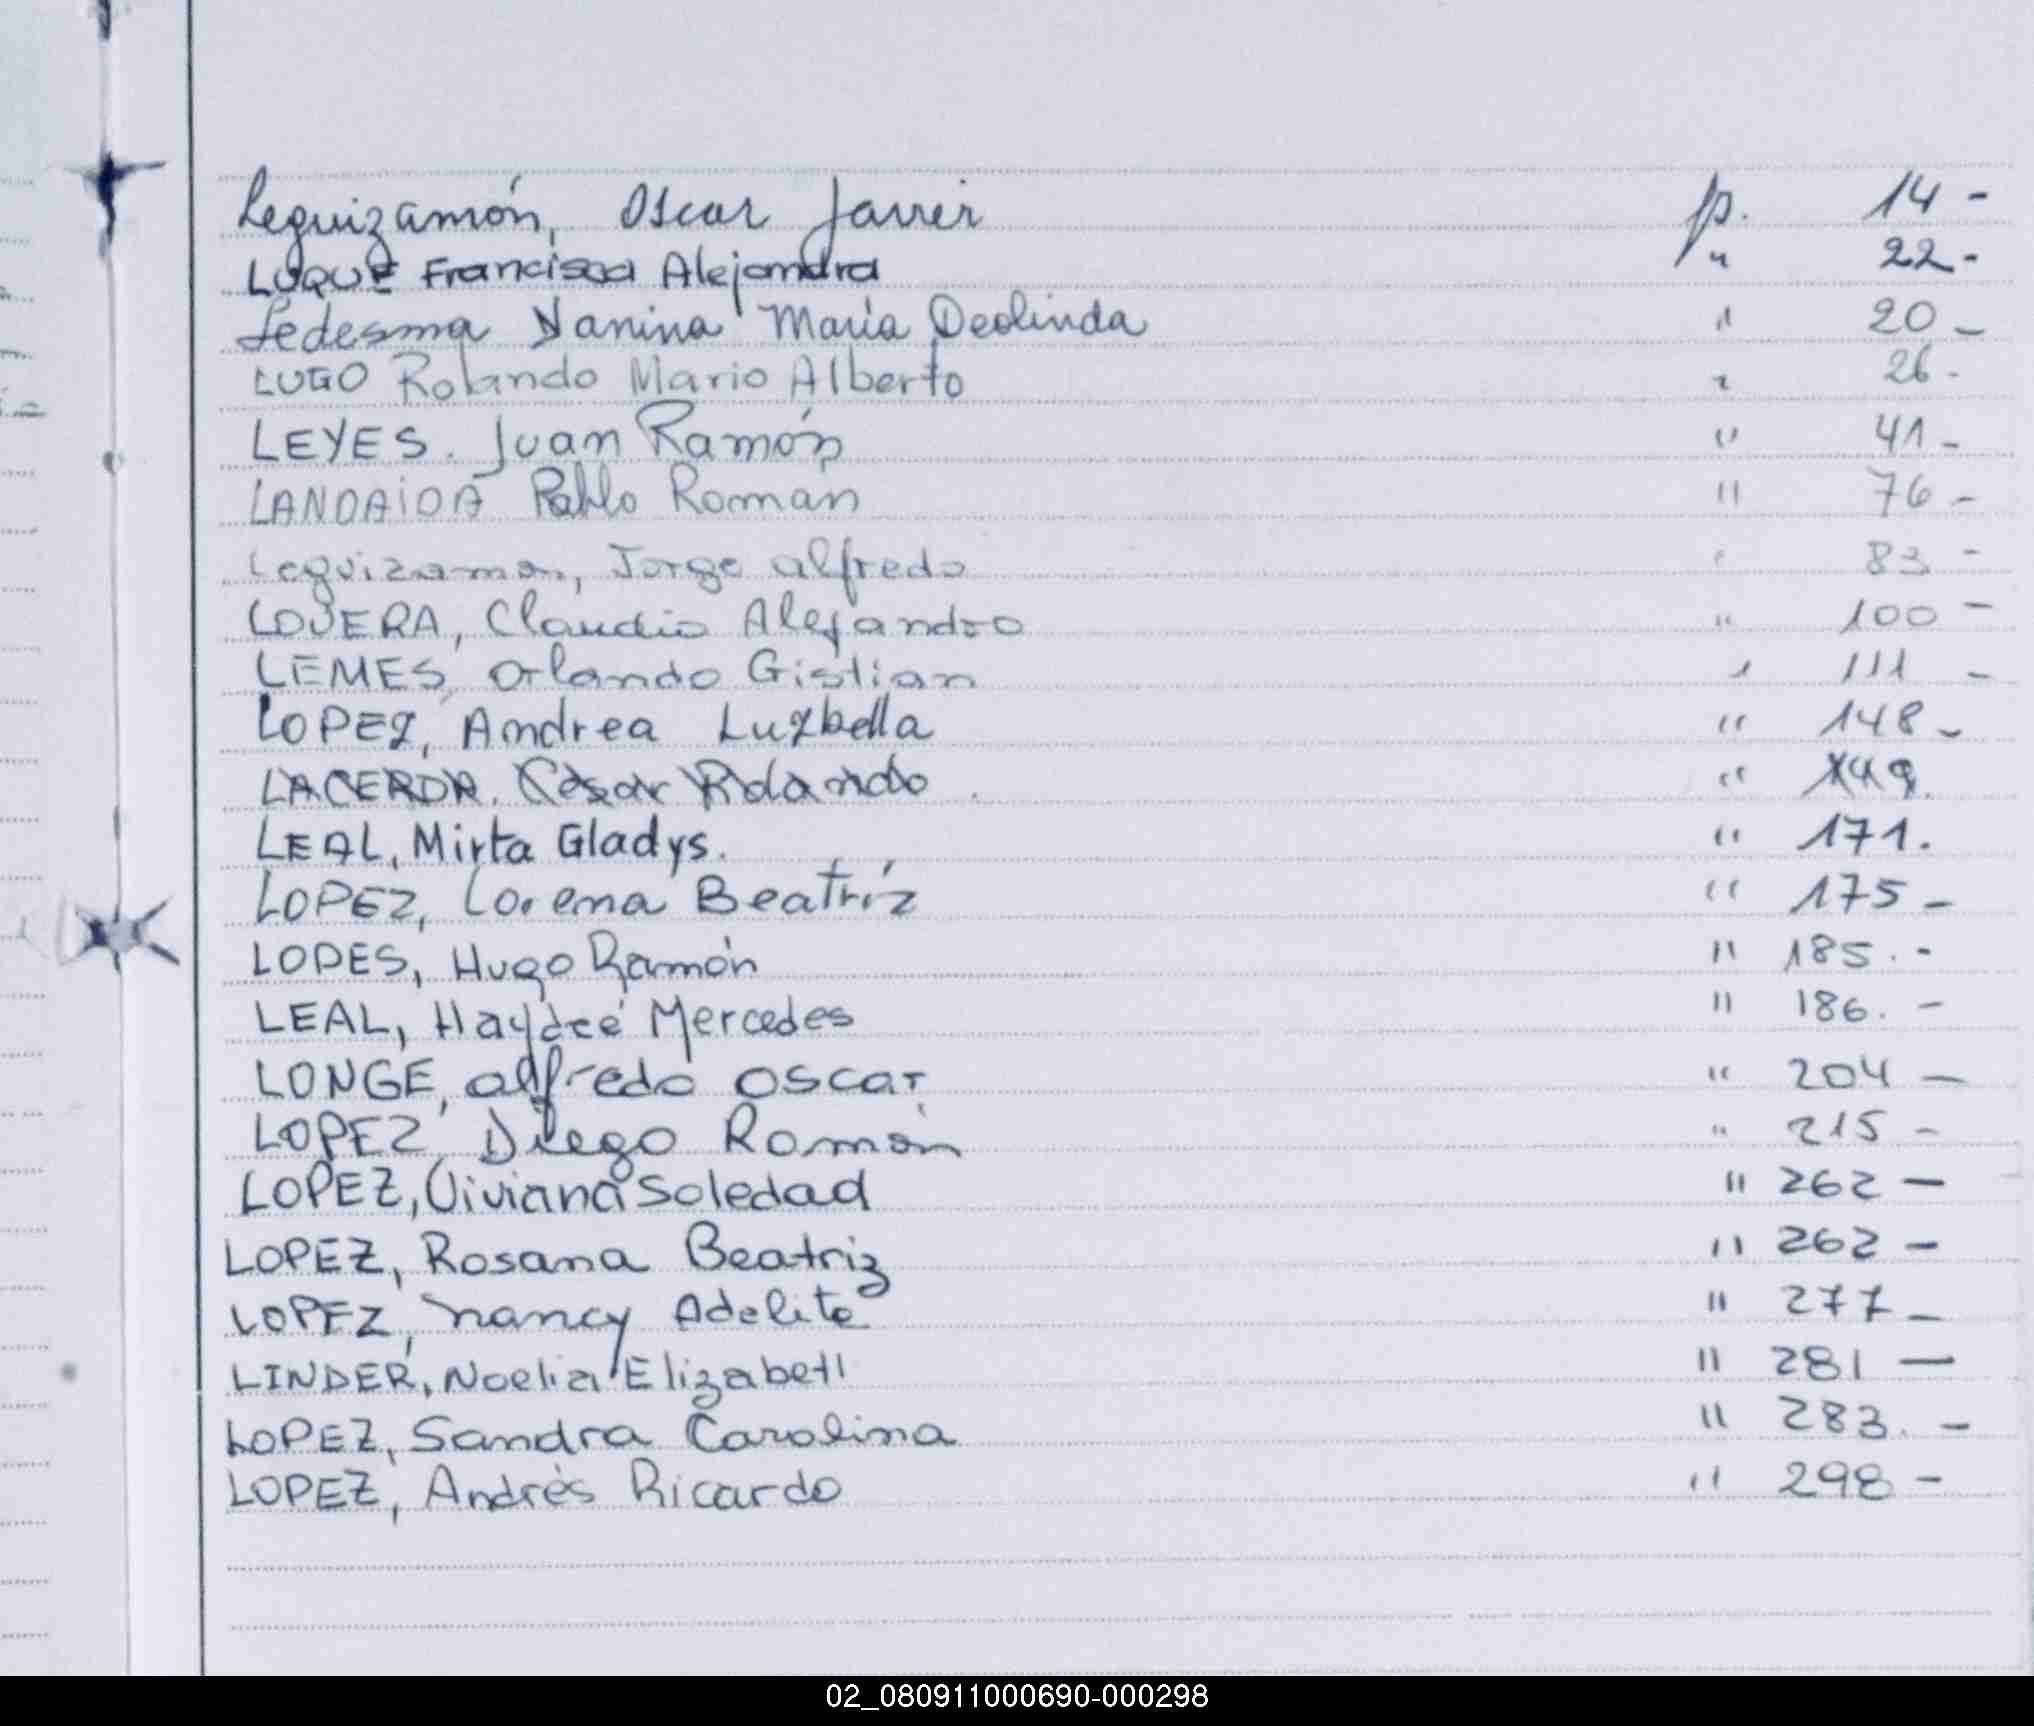 Leguizamón, Oscar Javier p. 14 -
LUQUE Francisca Alejandra " 22 -
Ledesma Yanina María Deolinda " 20 -
LUGO Rolando Mario Alberto " 26 -
LEYES. Juan Ramón " 41 -
LANDAIDA Pablo Roman " 76 -
Leguizamon, Jorge alfredo " 83 -
LOVERA, Claudio Alejandro " 100 -
LEMES, Orlando Cistian " 111 -
LOPEZ, Andrea Luzbella " 148 -
LACERDA. César Rolando " 149.
LEAL, Mirta Gladys. " 171.
LOPEZ, Lorena Beatríz " 175 -
LOPES, Hugo Ramón " 185. -
LEAL, Haydeé Mercedes " 186. -
LONGE, alfredo oscar " 204 -
LOPEZ, Diego Ramón " 215 -
LOPEZ, Viviana Soledad " 262 -
LOPEZ, Rosana Beatriz " 262 -
LOPEZ, nancy Adelita " 277 -
LINDER, Noelia Elizabeth " 281 -
LOPEZ, Sandra Carolina " 283. -
LOPEZ, Andrés Ricardo " 298 -
02_080911000690-000298